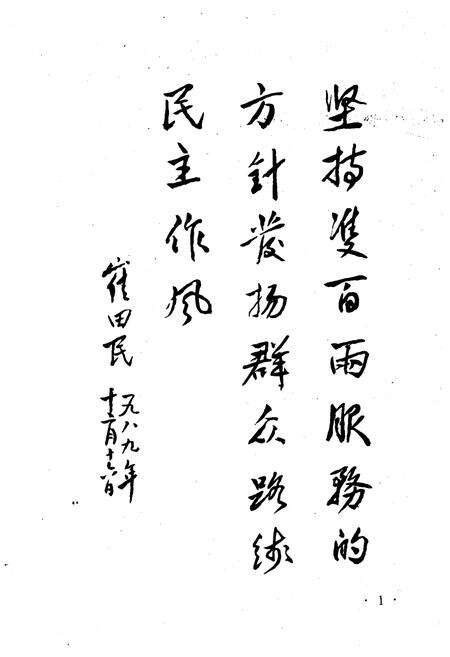 坚持双百两服務的
方針发扬群众路线
民主作风
崔田民
一九八九年
十二月十六日
· 1 ·